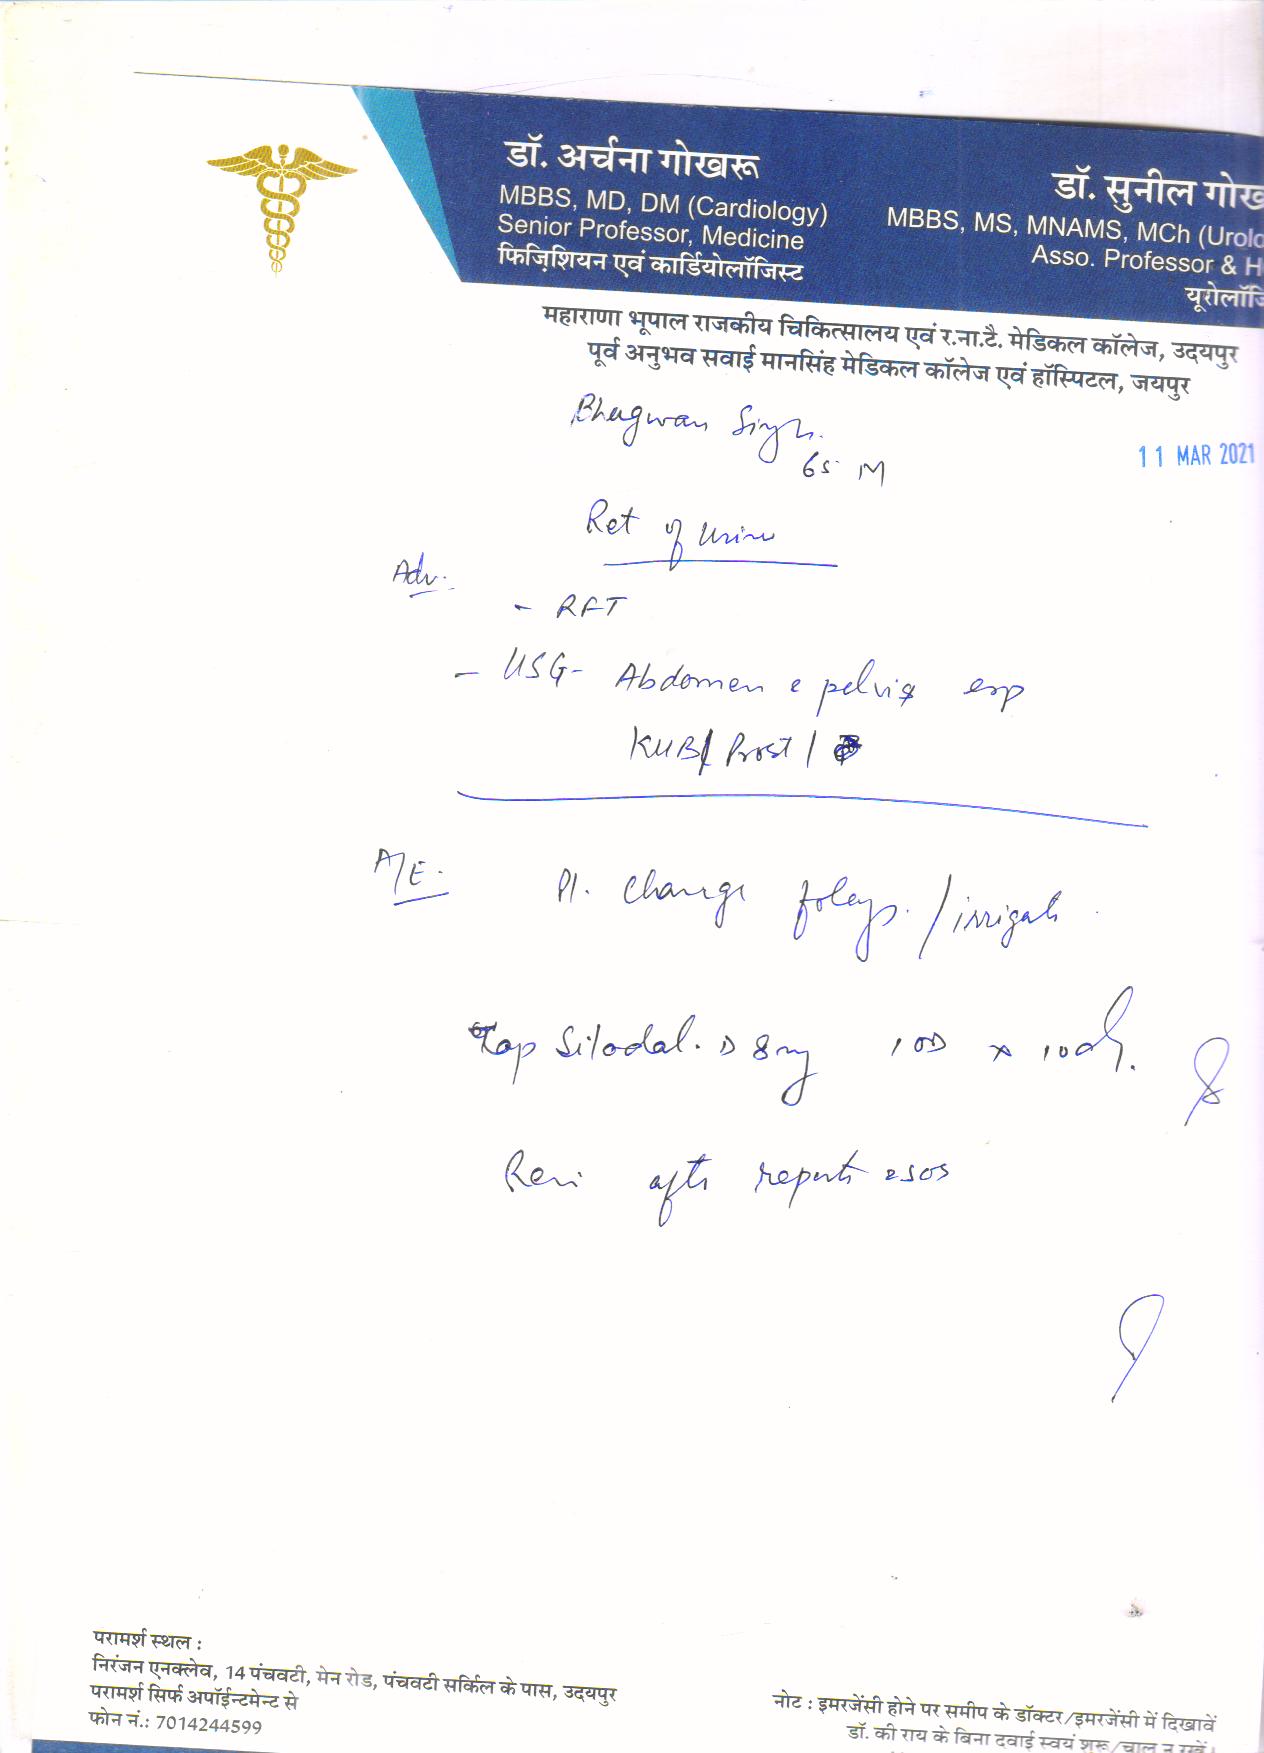 डॉ. अर्चना गोखरू
MBBS, MD, DM (Cardiology)
Senior Professor, Medicine
फिज़िशियन एवं कार्डियोलॉजिस्ट
डॉ. सुनील गोख
MBBS, MS, MNAMS, MCh (Urolo
Asso. Professor & H
यूरोलॉजि
महाराणा भूपाल राजकीय चिकित्सालय एवं र.ना.टै. मेडिकल कॉलेज, उदयपुर
पूर्व अनुभव सवाई मानसिंह मेडिकल कॉलेज एवं हॉस्पिटल, जयपुर
Bhagwan Singh.
65 M
11 MAR 2021
Ret of Urine
Adv.
- RFT
- USG- Abdomen c pelvis esp
KUB/ Prost /
A/E. Pl. Change foleys. / irrigate
Cap Silodal. D 8mg 1 OD x 10 d
Revi after reports SOS
परामर्श स्थल :
निरंजन एनक्लेव, 14 पंचवटी, मेन रोड, पंचवटी सर्किल के पास, उदयपुर
परामर्श सिर्फ अपॉईन्टमेन्ट से
फोन नं.: 7014244599
नोट : इमरजेंसी होने पर समीप के डॉक्टर/इमरजेंसी में दिखावें
डॉ. की राय के बिना दवाई स्वयं शुरू/चालू न रखें।